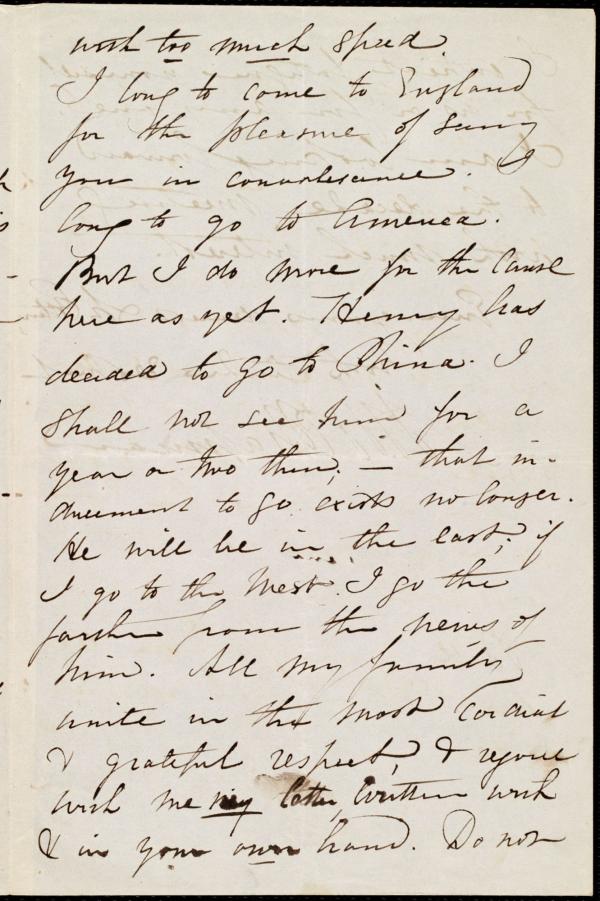 with too much speed.
I long to come to England
for the pleasure of seeing
you in convalescence. I
long to go to America.
But I do more for the cause
here as yet. Henry has
decided to go to China. I
shall not see him for a
year or two then; — that in-
ducement to go exists no longer.
He will be in the east; if
I go to the West I go the
farther from the news of
him. All my family
unite in the most cordial
& grateful respect, & rejoice
with me my letter, written with
& in your own hand. Do not